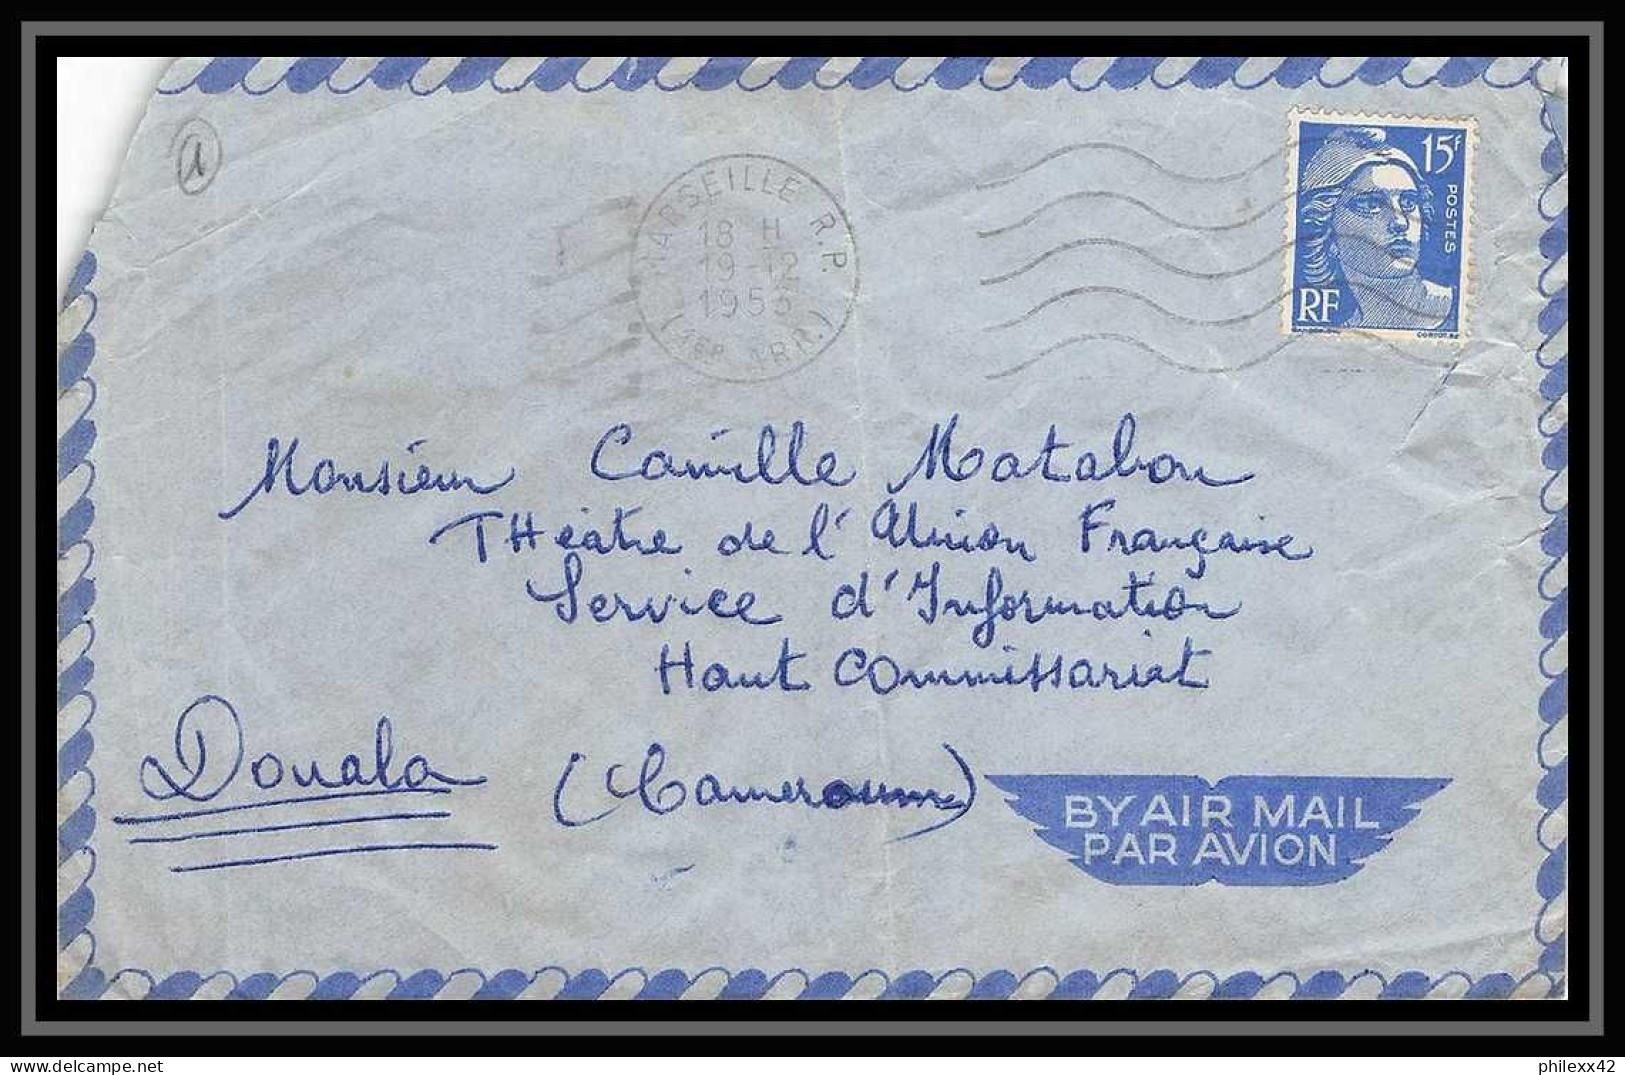 1
MARSEILLE R.P.
18 H
19-12
1953
(1ER ARR.)
15F
POSTES
RF
Monsieur Camille Matabon
THéâtre de l'Union Française
Service d'Information
Haut Commissariat
Douala (Cameroun)
BY AIR MAIL
PAR AVION
philexx42